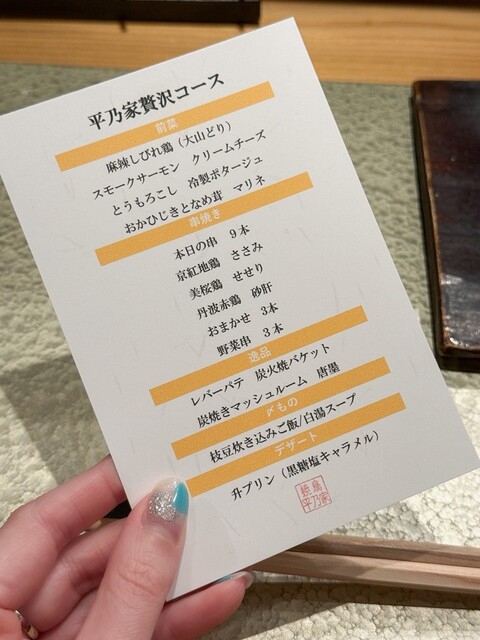 平乃家贅沢コース
前菜
麻辣しびれ鶏（大山どり）
スモークサーモン　クリームチーズ
とうもろこし　冷製ポタージュ
おかひじきとなめ茸　マリネ
串焼き
本日の串　９本
京紅地鶏　ささみ
美桜鶏　せせり
丹波赤鶏　砂肝
おまかせ　3本
野菜串　３本
逸品
レバーパテ　炭火焼バケット
炭焼きマッシュルーム　唐墨
〆もの
枝豆炊き込みご飯/白湯スープ
デザート
升プリン（黒糖塩キャラメル）
平乃家